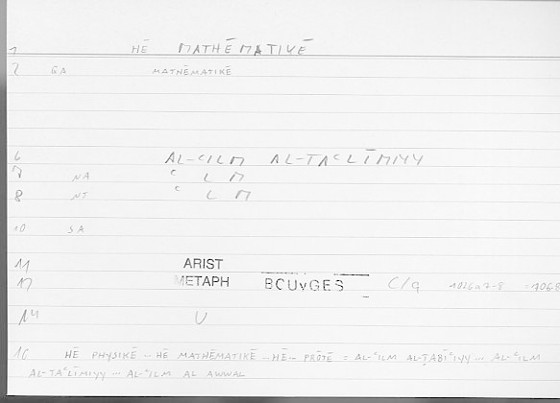 1 HĒ MATHĒMATIKĒ
2 GA MATHĒMATIKĒ
6 AL-ᶜILM AL-TAᶜLĪMIYY
7 NA ᶜ L M
8 NT ᶜ L M
10 SA
11 ARIST
12 METAPH BCUvGES C/g 1026a7-8 =1068
14 U
16 HĒ PHYSIKĒ -- HĒ MATHĒMATIKĒ -- HĒ -- PRŌTĒ = AL-ᶜILM AL-ṬABĪᶜIYY -- AL-ᶜILM
AL-TAᶜLĪMIYY -- AL-ᶜILM AL AWWAL